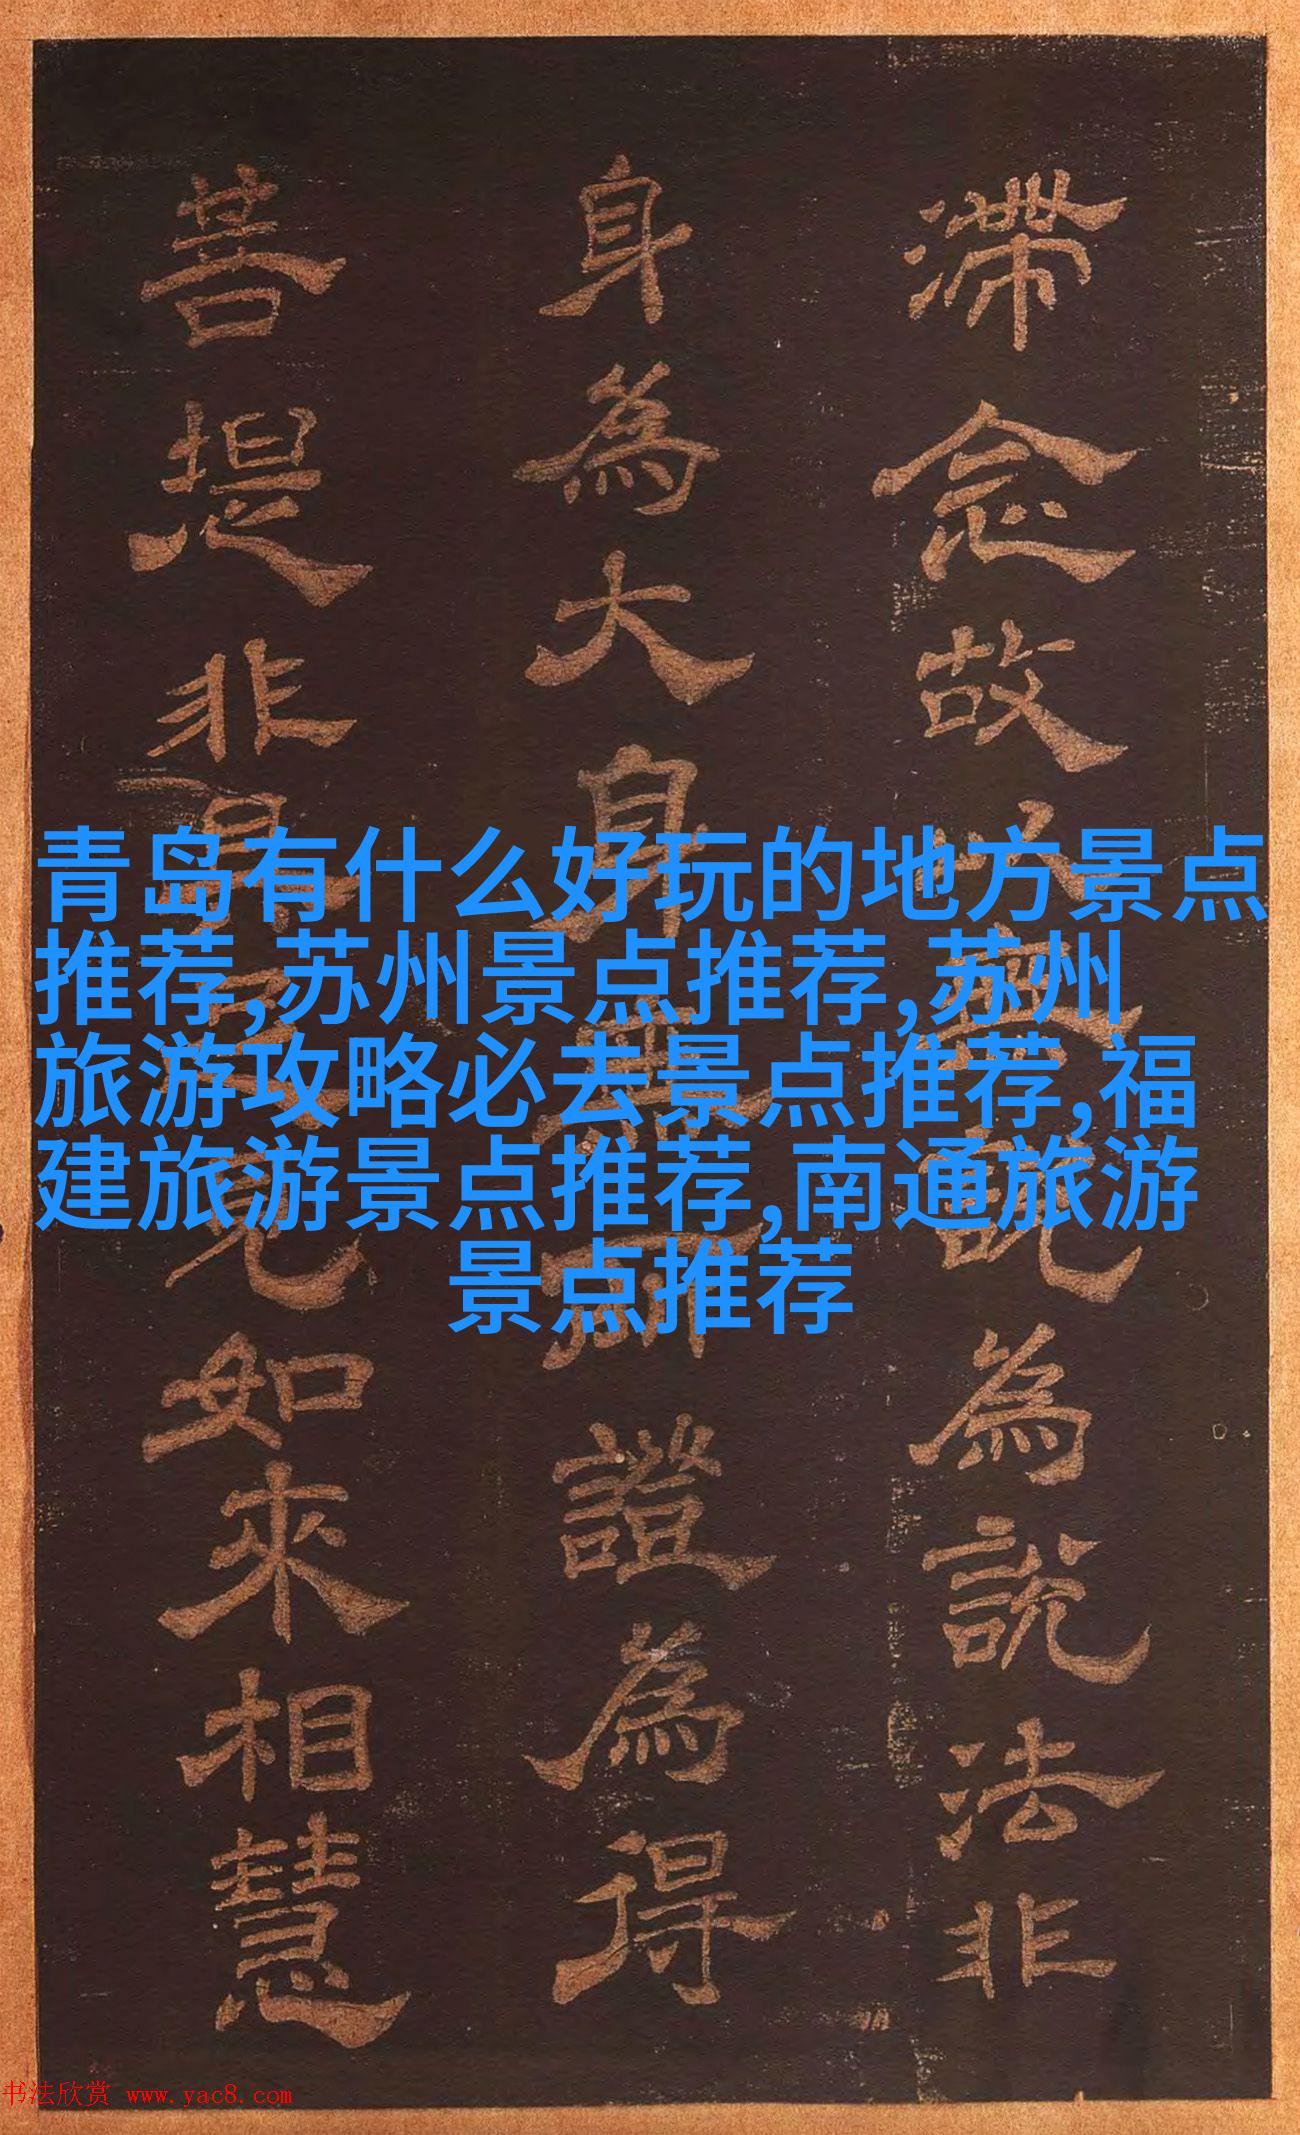 滯念故以無說為說法非
身為大身無所證為得
菩提非具見如來相慧
青岛有什么好玩的地方景点
推荐,苏州景点推荐,苏州
旅游攻略必去景点推荐,福
建旅游景点推荐,南通旅游
景点推荐
书法欣赏 www.yac8.com